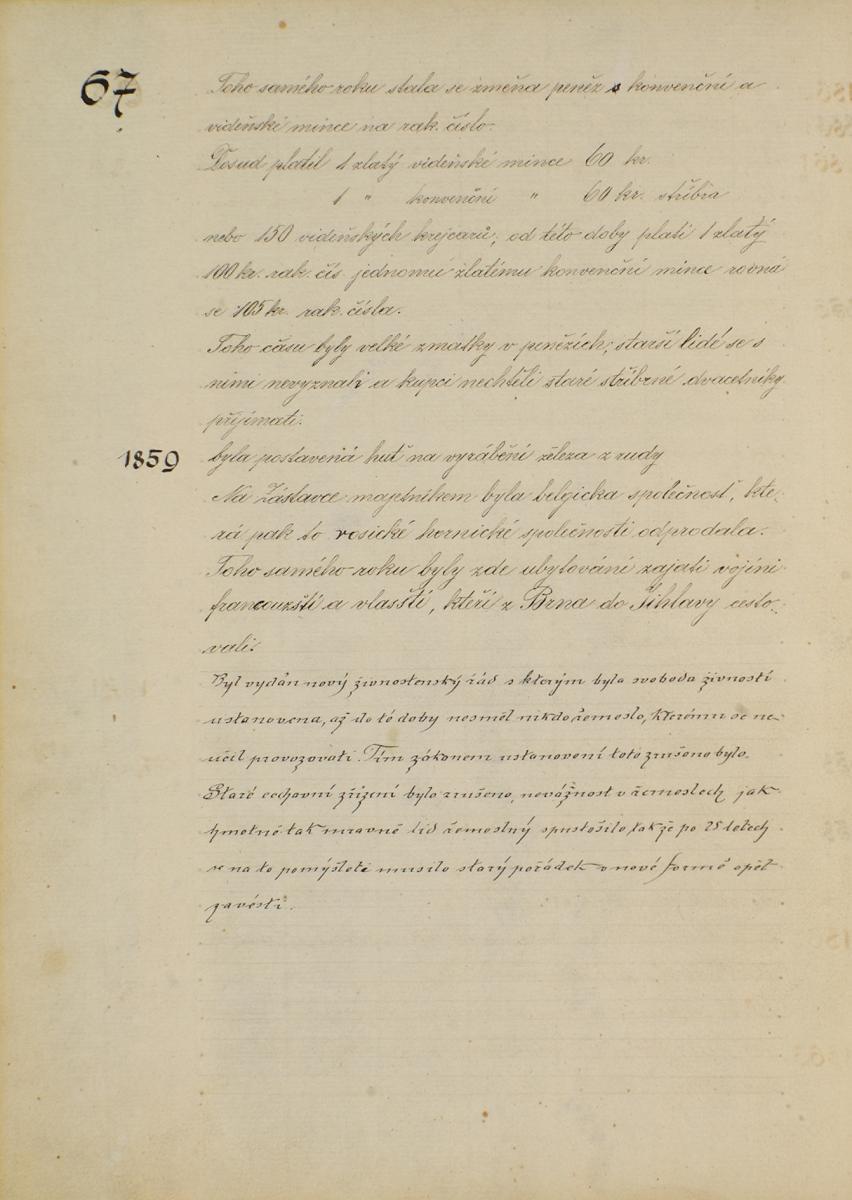 67
Toho samého roku stala se změna peněz s konvenční a
vídeňské mince na rak. číslo.
Dosud platil 1 zlatý vídeňské mince 60 kr.
1 " konvenční " 60 kr. stříbra
nebo 150 vídeňských krejcarů; od této doby platí 1 zlatý
100 kr. rak. čís. jednomu zlatému konvenční mince rovná
se 105 kr. rak. čísla.
Toho času byly velké zmatky v penězích; starší lidé se s
nimi nevyznali a kupci nechtěli staré stříbrné dvacetníky
přijímati.
1859 byla postavená huť na vyrábění železa z rudy
Na Zástavce majetníkem byla belgicka společnosť, kte-
rá pak to rosické hornické společnosti odprodala.
Toho samého roku byly zde ubytování zajatí vojíni
francouzští a vlasští, kteří z Brna do Jihlavy cesto-
vali.
Byl vydán nový živnostenský řád s kterým byla svoboda živností
ustanovena, až do té doby nesměl nikdo řemeslo, kterému se ne-
učil provozovati. Tím zákonem ustanovení toto zrušeno bylo.
Staré cechovní zřízení bylo zrušeno, nevážnost v řemeslech jak
hmotně tak mravně lid řemeslný spustošilo, tak že po 25 letech
se na to pomýšleti musilo starý pořádek v nové formě opět
zavésti.